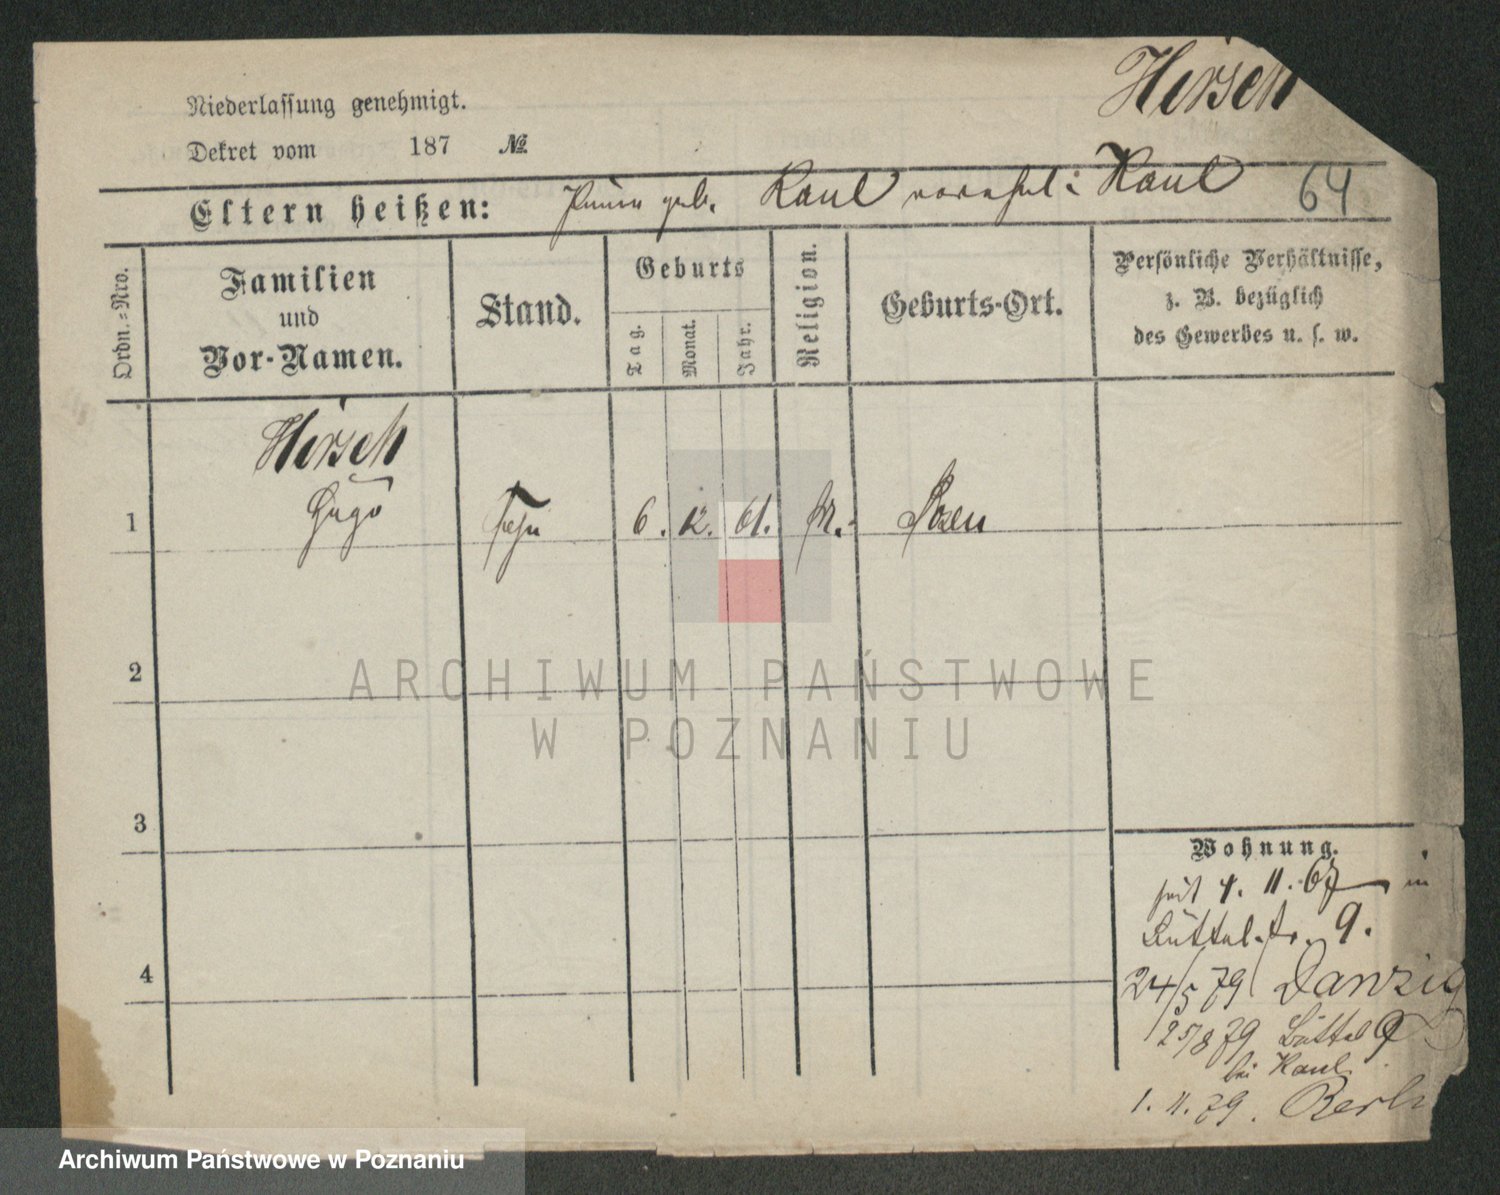 Hirsch
Niederlassung genehmigt.
Dekret vom 187 №
Eltern heißen: geb. Kaul Kaul 64
Ordn.=Nro.
Familien
und
Vor-Namen.
Stand.
Geburts
Tag.
Monat.
Jahr.
Religion.
Geburts-Ort.
Persönliche Verhältnisse,
z. B. bezüglich
des Gewerbes u. s. w.
Hirsch
1 Hugo 6. 12. 61. Posen
2
3
4
ARCHIWUM PAŃSTWOWE
W POZNANIU
Wohnung.
seit 1. 11. 67 in
Büttelstr. 9.
24/5 79 Danzig
25/8 79 Büttel 9
bei Kaul
1. 11. 79. Berli
Archiwum Państwowe w Poznaniu